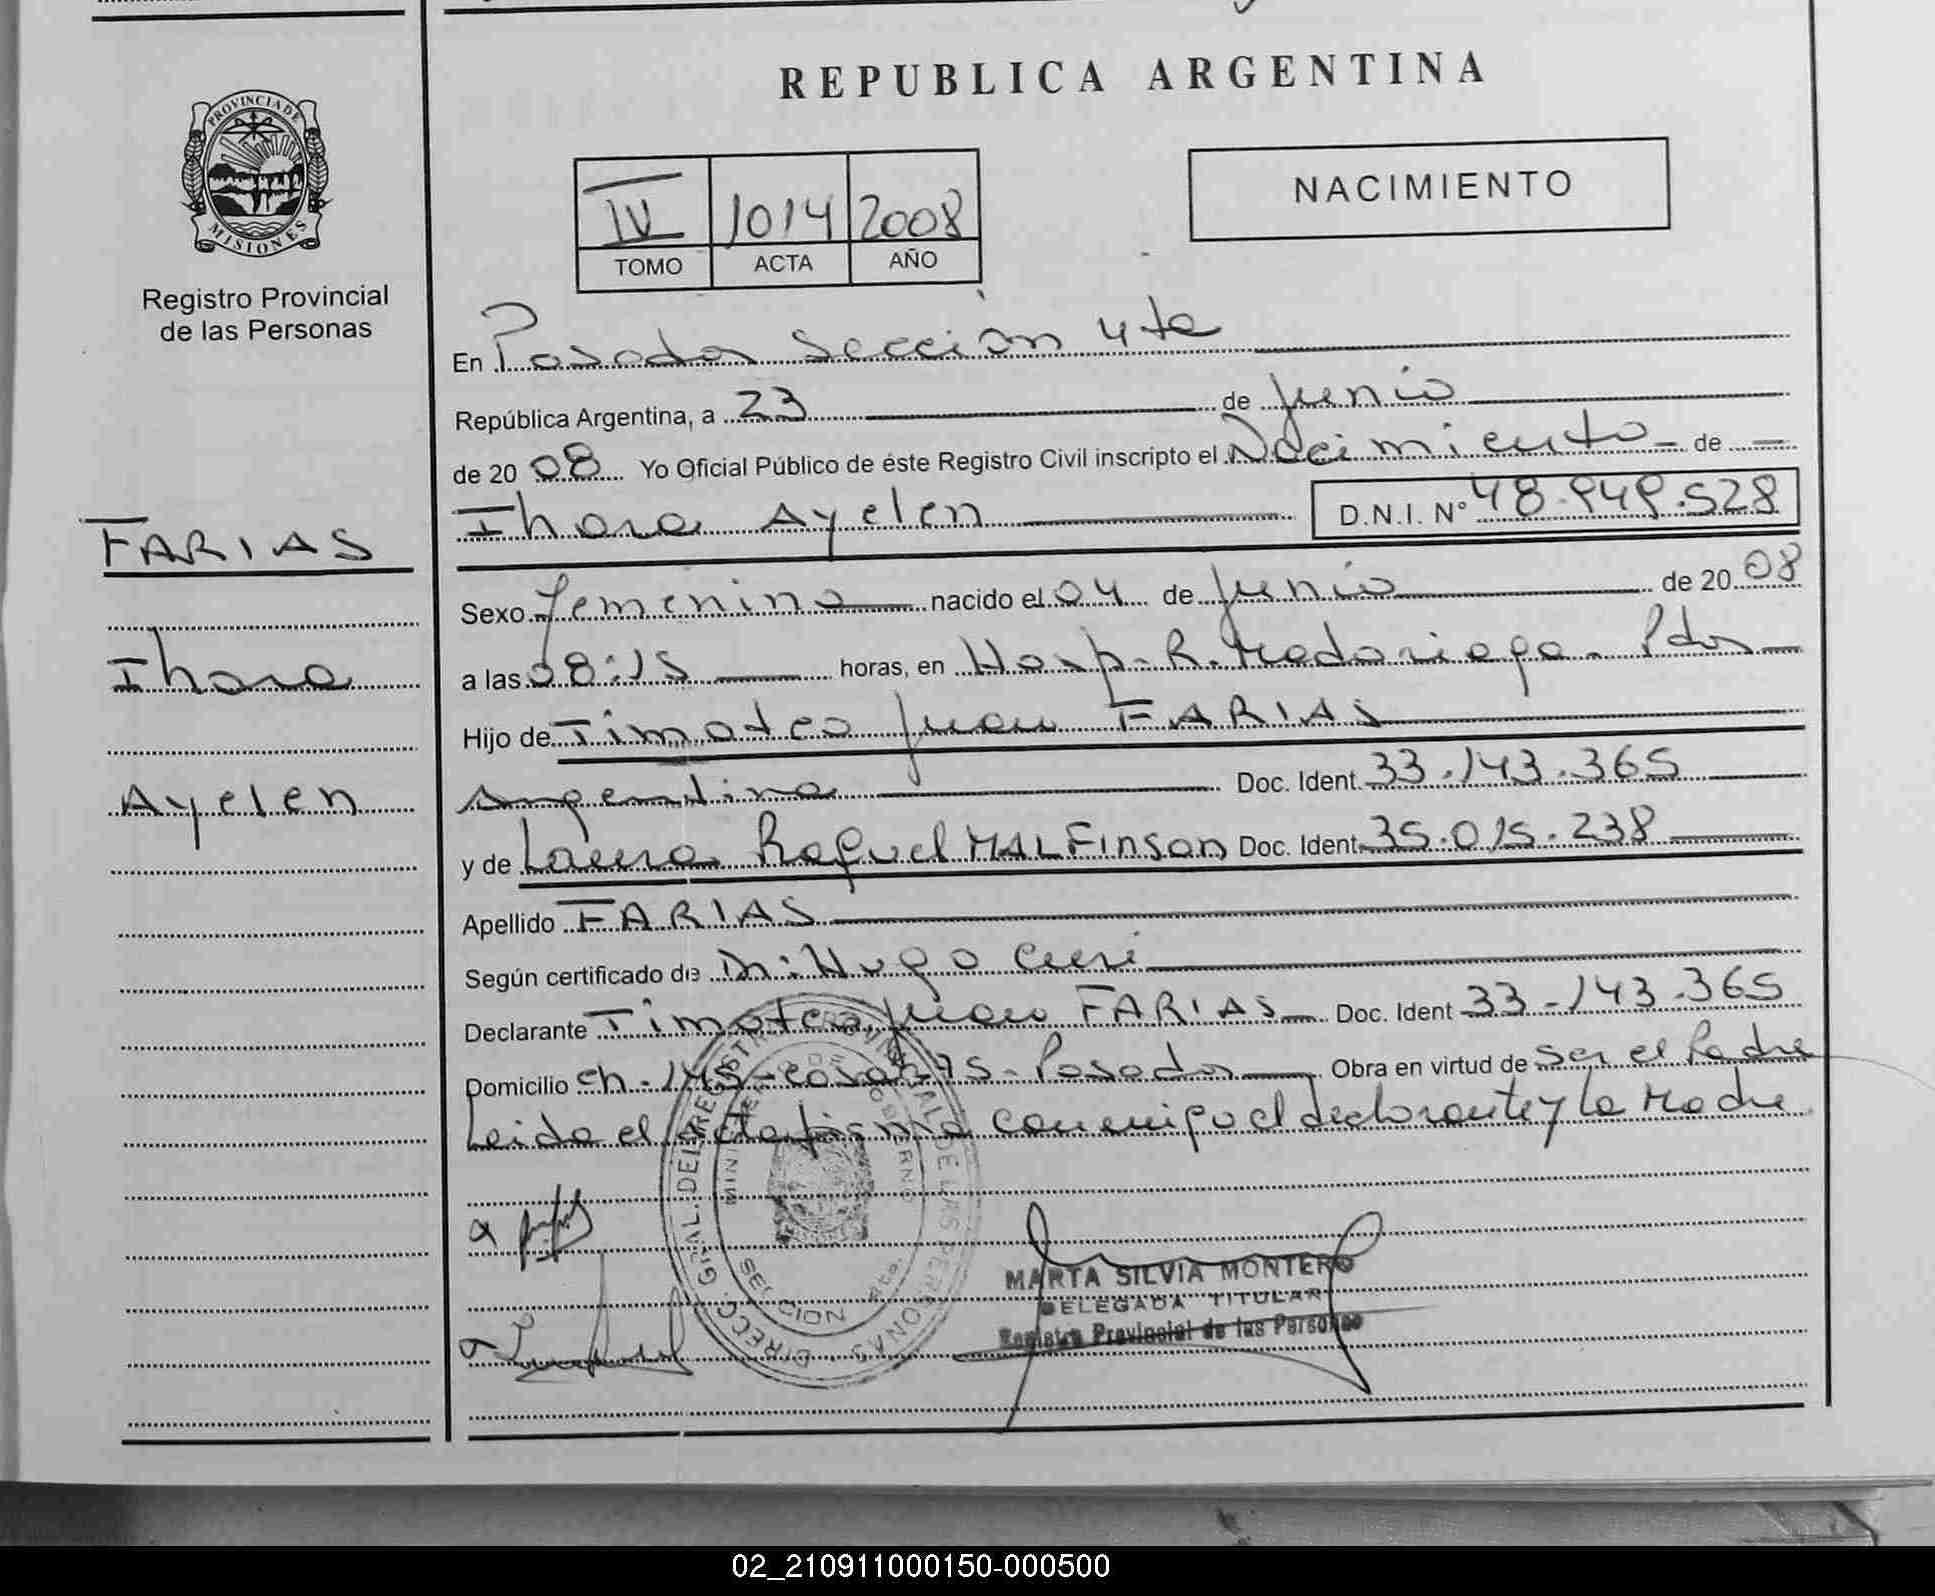 REPUBLICA ARGENTINA
PROVINCIA DE
MISIONES
Registro Provincial
de las Personas
NACIMIENTO
IV 1014 2008
TOMO ACTA AÑO
En Posadas Sección 4ta
República Argentina, a 23 de Junio
de 2008 Yo Oficial Público de éste Registro Civil inscripto el Nacimiento de
Ihara Ayelen D.N.I. N° 48.949.528
FARIAS
Ihara
Ayelen
Sexo femenino nacido el 04 de Junio de 2008
a las 08:15 horas, en Hosp. R. Madariaga - Pdas
Hijo de Timoteo Juan FARIAS
Argentina Doc. Ident. 33.143.365
y de Laura Raquel MALFINSON Doc. Ident. 35.015.238
Apellido FARIAS
Según certificado de Dr: Hugo
Declarante Timoteo Juan FARIAS Doc. Ident 33.143.365
Domicilio Ch. 145 - casa 75 - Posadas Obra en virtud de ser el Padre
Leida el acta firma conmigo el declarante y la Madre
DIRECC. GRAL. DEL REGISTRO PROVINCIAL DE LAS PERSONAS
MINISTERIO DE GOBIERNO
SECCION 4ta.
MARTA SILVIA MONTERO
DELEGADA TITULAR
Registro Provincial de las Personas
02_210911000150-000500